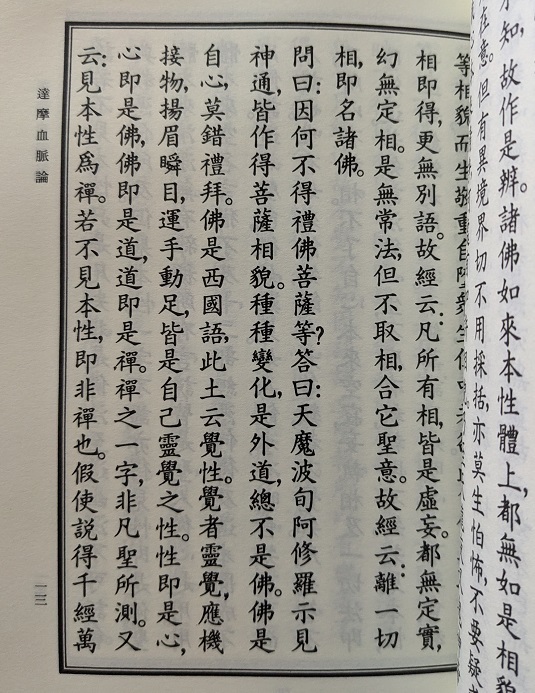 知,故作是辨。諸佛如來本性體上,都無如是相貌
在意。但有異境界切不用採括,亦莫生怕怖,不要疑
等相貌而生敬重自
相即得,更無別語。故經云:凡所有相,皆是虛妄。都無定實,
幻無定相。是無常法,但不取相,合它聖意。故經云:離一切
相,即名諸佛。
問曰:因何不得禮佛菩薩等?答曰:天魔波旬阿修羅示見
神通,皆作得菩薩相貌。種種變化,是外道,總不是佛。佛是
自心,莫錯禮拜。佛是西國語,此土云覺性。覺者靈覺,應機
接物,揚眉瞬目,運手動足,皆是自己靈覺之性。性即是心,
心即是佛,佛即是道,道即是禪。禪之一字,非凡聖所測。又
云:見本性爲禪。若不見本性,即非禪也。假使説得千經萬
達摩血脈論
一三